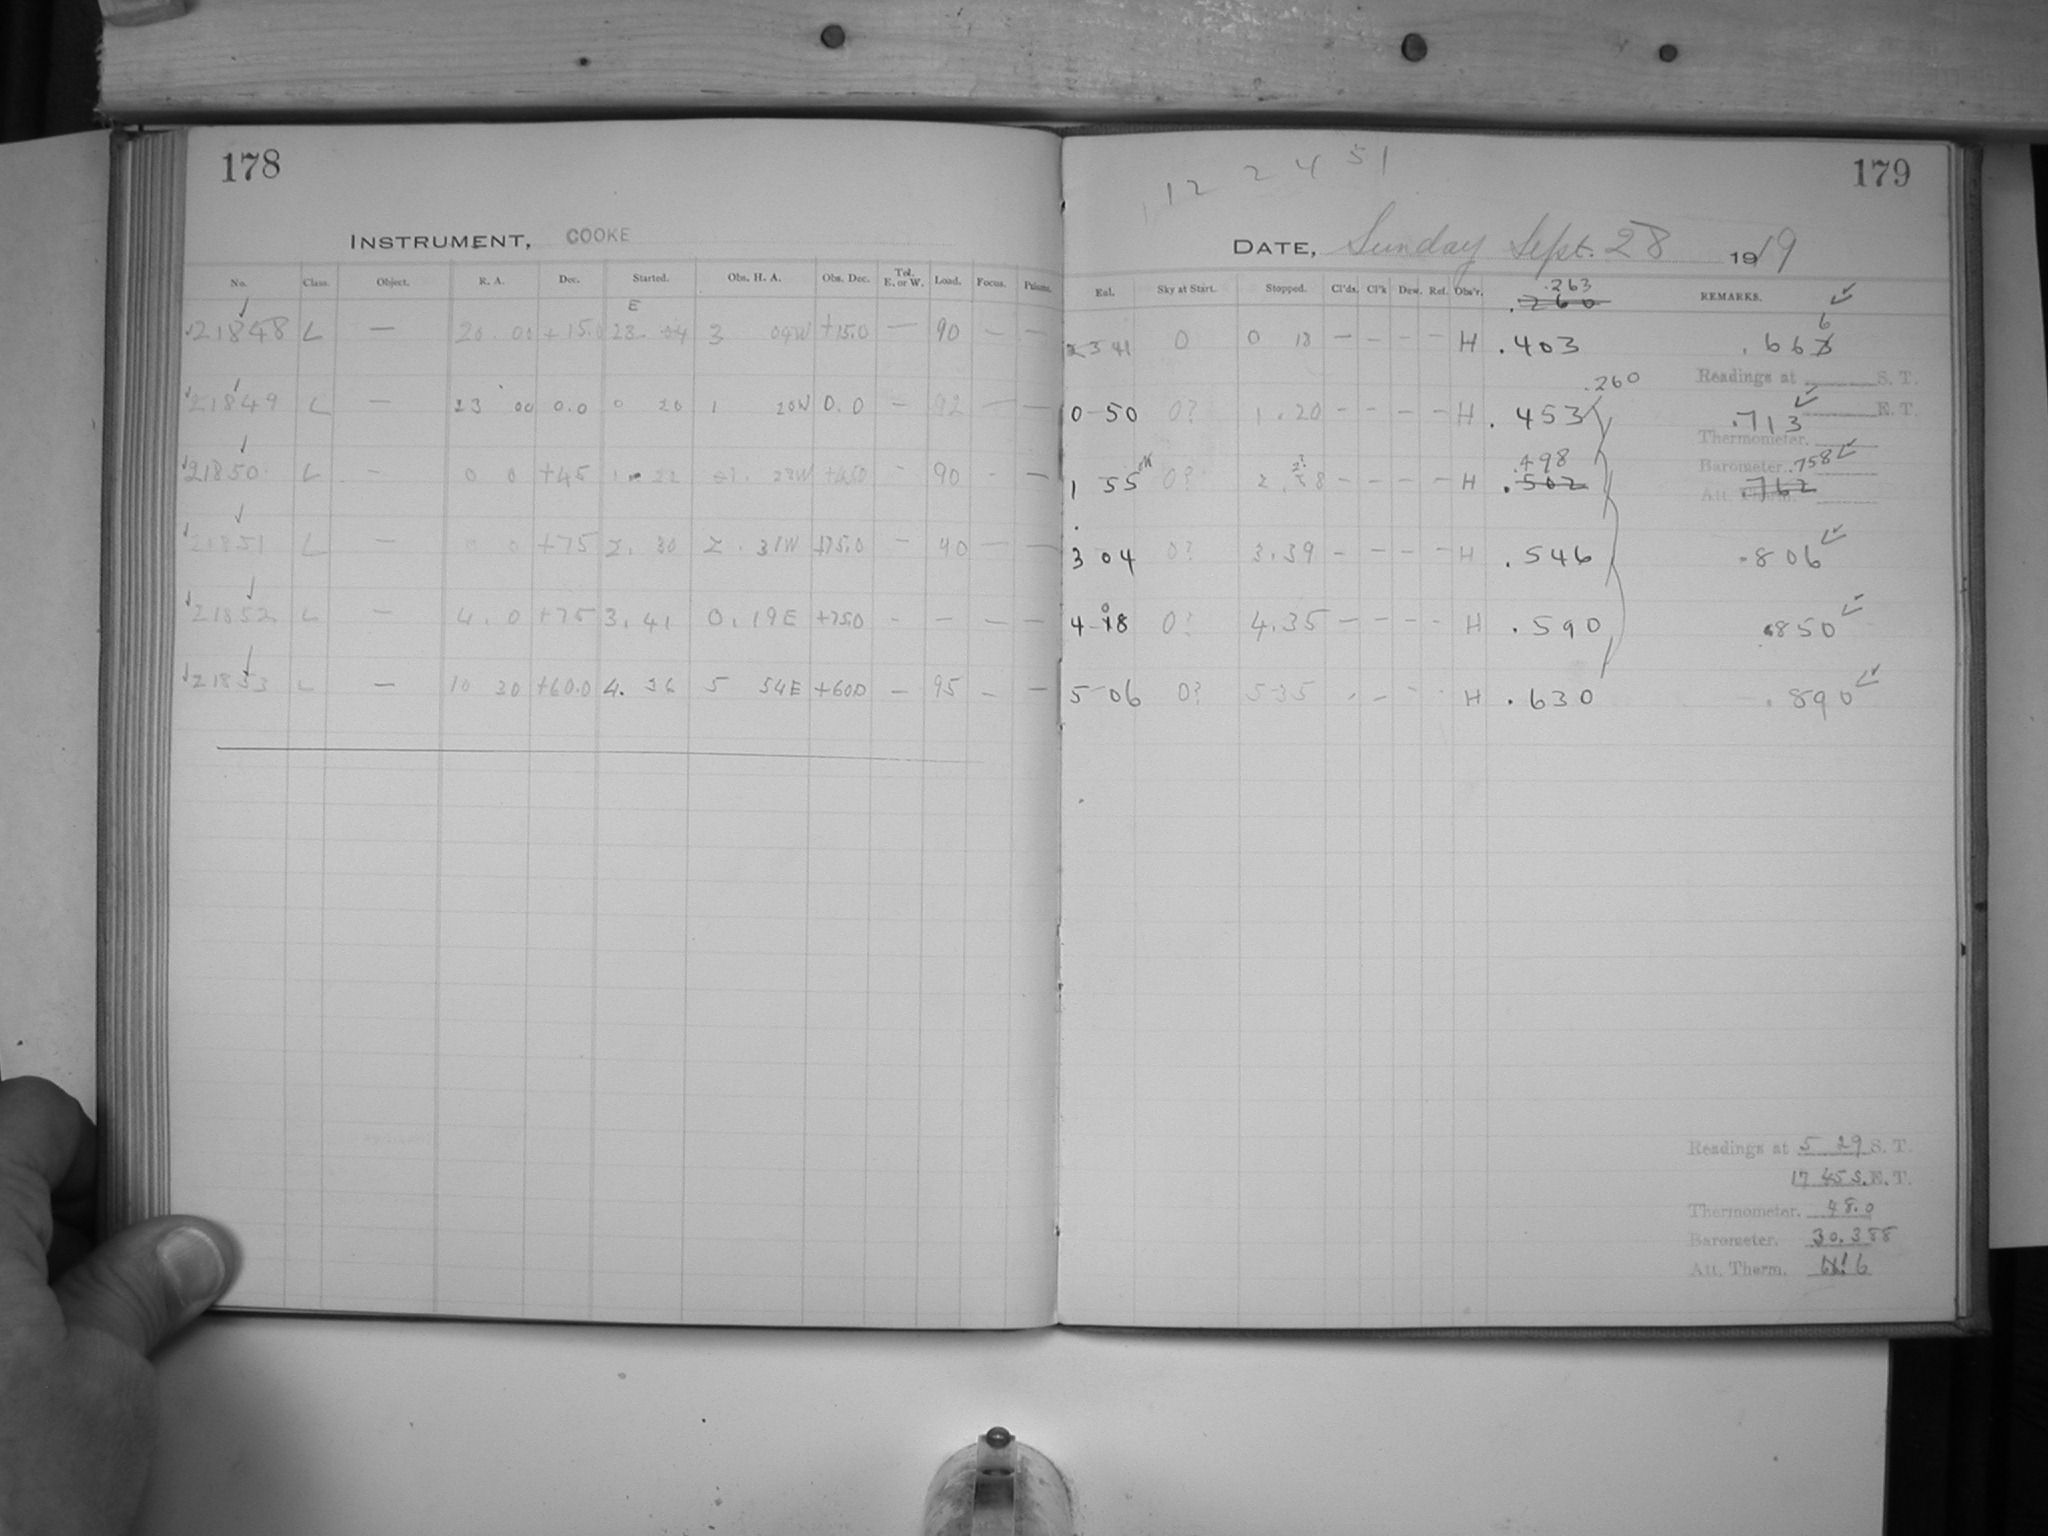 178
INSTRUMENT, COOKE
No. Class. Object. R. A. Dec. Started. Obs. H. A. Obs. Dec. Tel. E. or W. Load. Focus. Prisms.
E
21848 L — 20. 00 +15.0 23. 04 3 04W +15.0 — 90 — —
21849 L — 23 00 0.0 0 20 1 20W 0.0 — 92 — —
21850 L — 0 0 +45 1. 22 1. 23W +45.0 - 90 - —
21851 L — 0 0 +75 2. 30 2. 31W +75.0 — 90 — —
21852 L — 4. 0 +75 3. 41 0. 19E +75.0 - — — —
21853 L — 10 30 +60.0 4. 36 5 54E +60.0 — 95 — —
179
12 2 4 51
DATE, Sunday Sept. 28 1919
Exl. Sky at Start. Stopped. Cl'ds. Cl'k Dew. Ref. Obs'r. REMARKS.
.263
.260
23 41 0 0 18 — - - - H .403 .666
Readings at S. T.
.260
0-50 0? 1.20 - - — - H .453 .713 E. T.
Thermometer.
.498 Barometer. .758
1 55 0? 2.28 - - - - H .502 .762
Att. Therm.
3 04 0? 3.39 - - - - H .546 .806
4-08 0? 4.35 — - - - H .590 .850
5-06 0? 5 35 - - - - H .630 .890
Readings at 5 29 S. T.
17 45 S. E. T.
Thermometer. 48.0
Barometer. 30.388
Att. Therm.